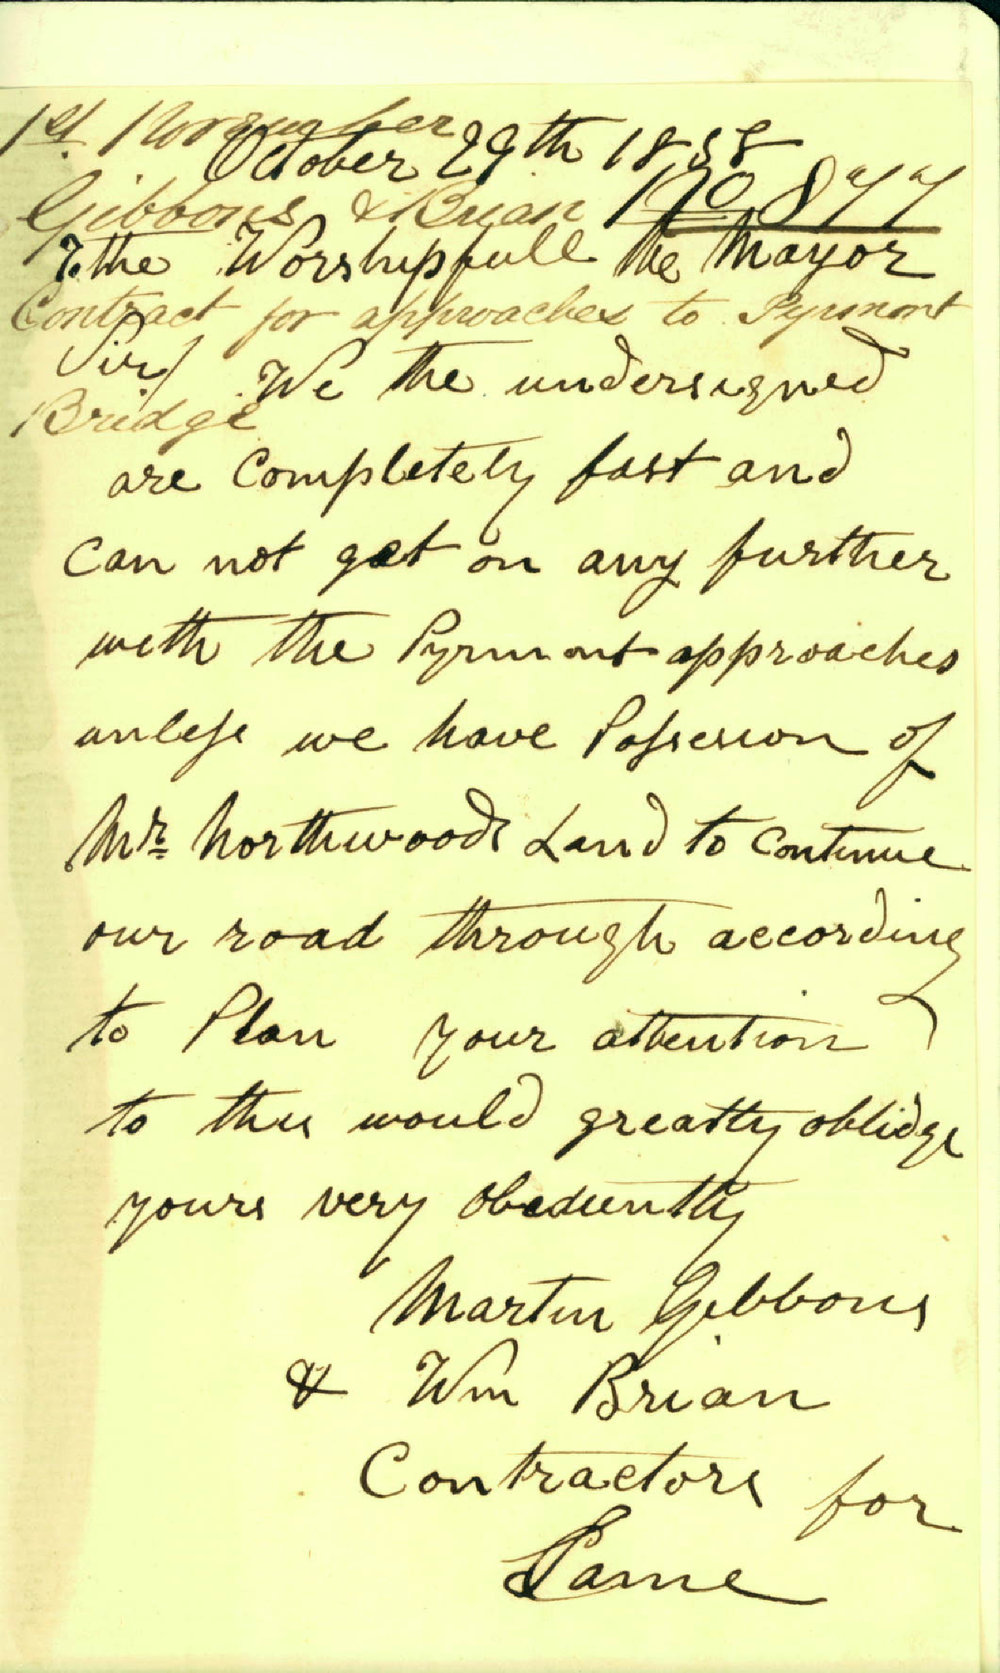 1st. November
October 29th 1858
Gibbons & Brian No 877
To the Worshipfull the Mayor
Contract for approaches to Pyrmont
Sir/ We the undersigned
Bridge
are Completely fast and
Can not get on any further
with the Pyrmont approaches
unless we have Possession of
Mr. Northwoods Land to Continue
our road through according
to Plan your attention
to this would greatly oblidge
yours very obediently
Martin Gibbons
& Wm Brian
Contractors for
Same